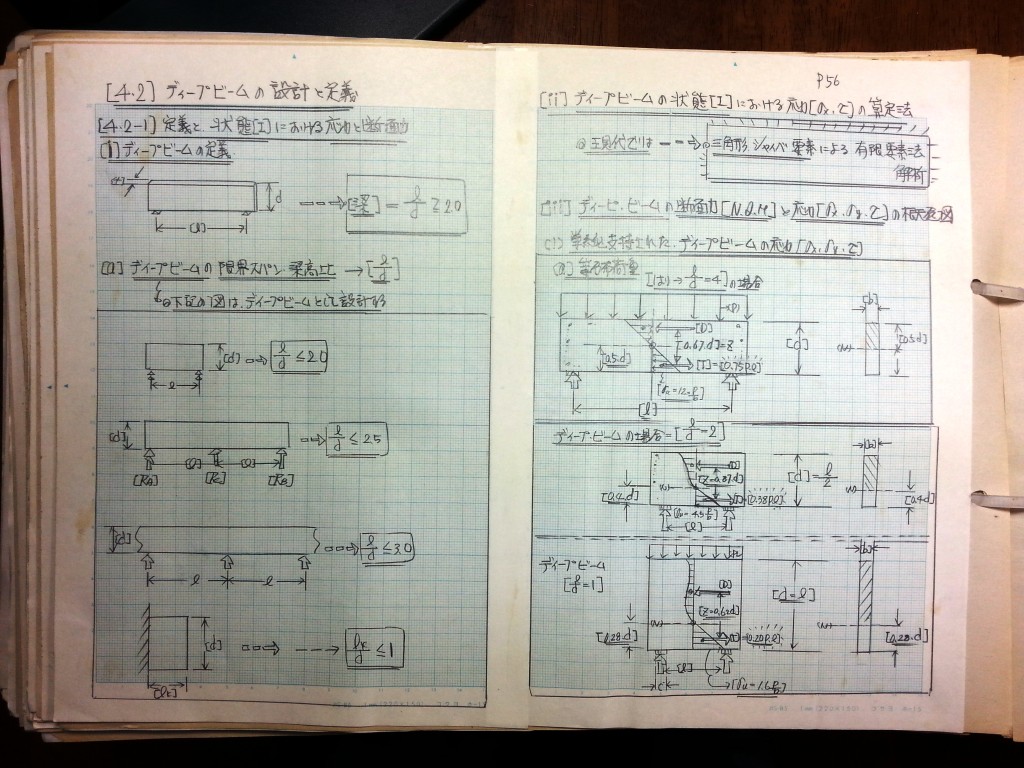 [4.2] ディープビームの設計と定義
[4.2-1] 定義と状態[I]における応力と断面力
[i] ディープビームの定義
[d]
[l]
[梁] = l/d ≧ 2.0
[ii] ディープビームの限界スパン梁高比 → [l/d]
下記の図は、ディープビームとして設計する
[d]
l
l/d ≤ 2.0
[d]
[l]
[l]
[RA]
[Rc]
[RB]
l/d ≤ 2.5
[d]
l
l
l/d ≤ 3.0
[d]
[lk]
lk/d ≤ 1
P56
[ii] ディープビームの状態[I]における応力[σx.τ]の算定法
現代では
三角形シャイベ要素による有限要素法
解析
[iii] ディープ・ビームの断面力[N.Q.M]と応力[σx.σy.τ]の概略図
(1) 単純支持された、ディープビームの応力[σx.σy.τ]
(a) 等分布荷重
[はり → l/d=4]の場合
(P)
[D]
[0.67.d]=Z
[0.5.d]
[T]=[0.75P.l]
[l]
[d]
[b]
[0.5.d]
ディープビームの場合=[l/d=2]
[D]
[0.4.d]
[0.38P.l]
[l]
[d]=l/2
[b]
[0.4.d]
ディープビーム
[l/d=1]
[D]
[Z=0.62d]
[0.28.d]
[T]=[0.20P.l]
[l]
[d=l]
[b]
[0.28.d]